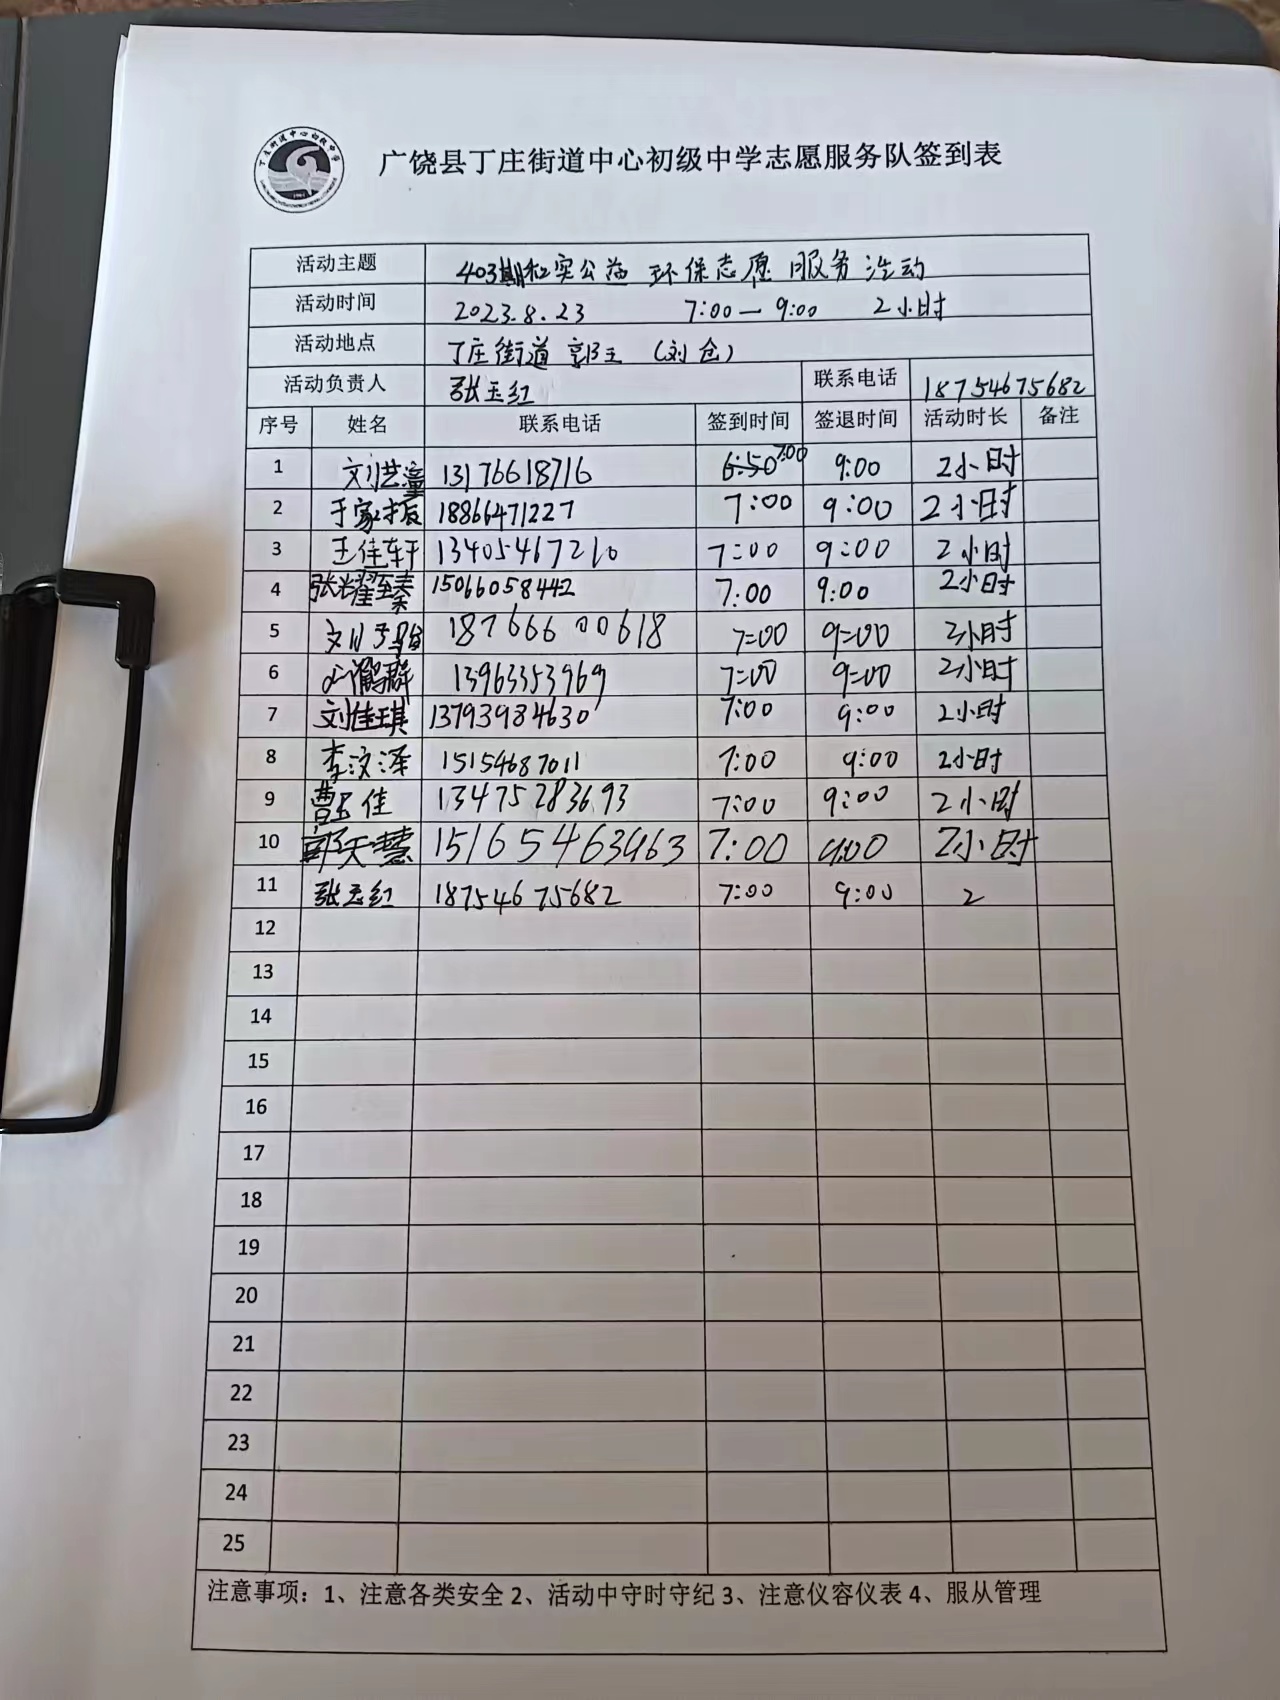 丁庄街道中心初级中学
广饶县丁庄街道中心初级中学志愿服务队签到表
活动主题 403期和实公益 环保志愿服务活动
活动时间 2023.8.23 7:00—9:00 2小时
活动地点 丁庄街道 郭王 (刘仓)
活动负责人 张玉红 联系电话 18754675682
序号 姓名 联系电话 签到时间 签退时间 活动时长 备注
1 刘艺潼 13176618716 6:50 7:00 9:00 2小时
2 于家振 18866471227 7:00 9:00 2小时
3 王佳轩 13405467210 7:00 9:00 2小时
4 张耀至秦 15066058442 7:00 9:00 2小时
5 刘子骀 18766600618 7:00 9:00 2小时
6 鹤群 13963353969 7:00 9:00 2小时
7 刘佳琪 13793984630 7:00 9:00 2小时
8 李汶泽 15154687011 7:00 9:00 2小时
9 曹玉佳 13475283693 7:00 9:00 2小时
10 郭天慧 15165463963 7:00 9:00 2小时
11 张玉红 18754675682 7:00 9:00 2
12
13
14
15
16
17
18
19
20
21
22
23
24
25
注意事项：1、注意各类安全 2、活动中守时守纪 3、注意仪容仪表 4、服从管理